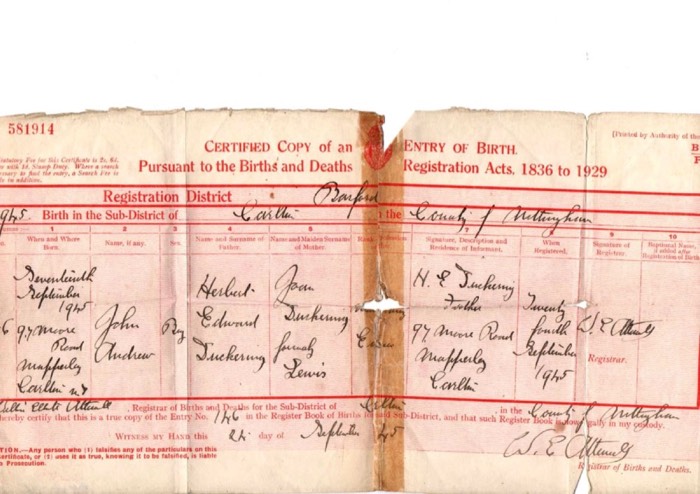 581914
CERTIFIED COPY of an ENTRY OF BIRTH.
[Printed by Authority of the
Statutory Fee for this Certificate is 2s. 6d.
with 1d. Stamp Duty. Where a search
necessary to find the entry, a Search Fee is
in addition.
Pursuant to the Births and Deaths Registration Acts, 1836 to 1929
B
Registration District Basford
1945. Birth in the Sub-District of Carlton in the County of Nottingham
1 2 3 4 5 7 8 9 10
When and Where Born. Name, if any. Sex. Name and Surname of Father. Name and Maiden Surname of Mother. Signature, Description and Residence of Informant. When Registered. Signature of Registrar. Baptismal Name if added after Registration of Birth
Seventeenth September 1945 97 Moore Road Mapperley Carlton
John Andrew
Boy
Herbert Edward Duckering
Joan Duckering formerly Lewis
H. E. Duckering Father 97 Moore Road Mapperley Carlton
Twenty fourth September 1945
W. E. Attewell
Registrar.
Attewell, Registrar of Births and Deaths for the Sub-District of Carlton, in the County of Nottingham
hereby certify that this is a true copy of the Entry No. 146 in the Register Book of Births for said Sub-District, and that such Register Book is now legally in my custody.
WITNESS MY HAND this 24 day of September 45
W. E. Attewell
Registrar of Births and Deaths.
TION.—Any person who (1) falsifies any of the particulars on this
certificate, or (2) uses it as true, knowing it to be falsified, is liable
to Prosecution.